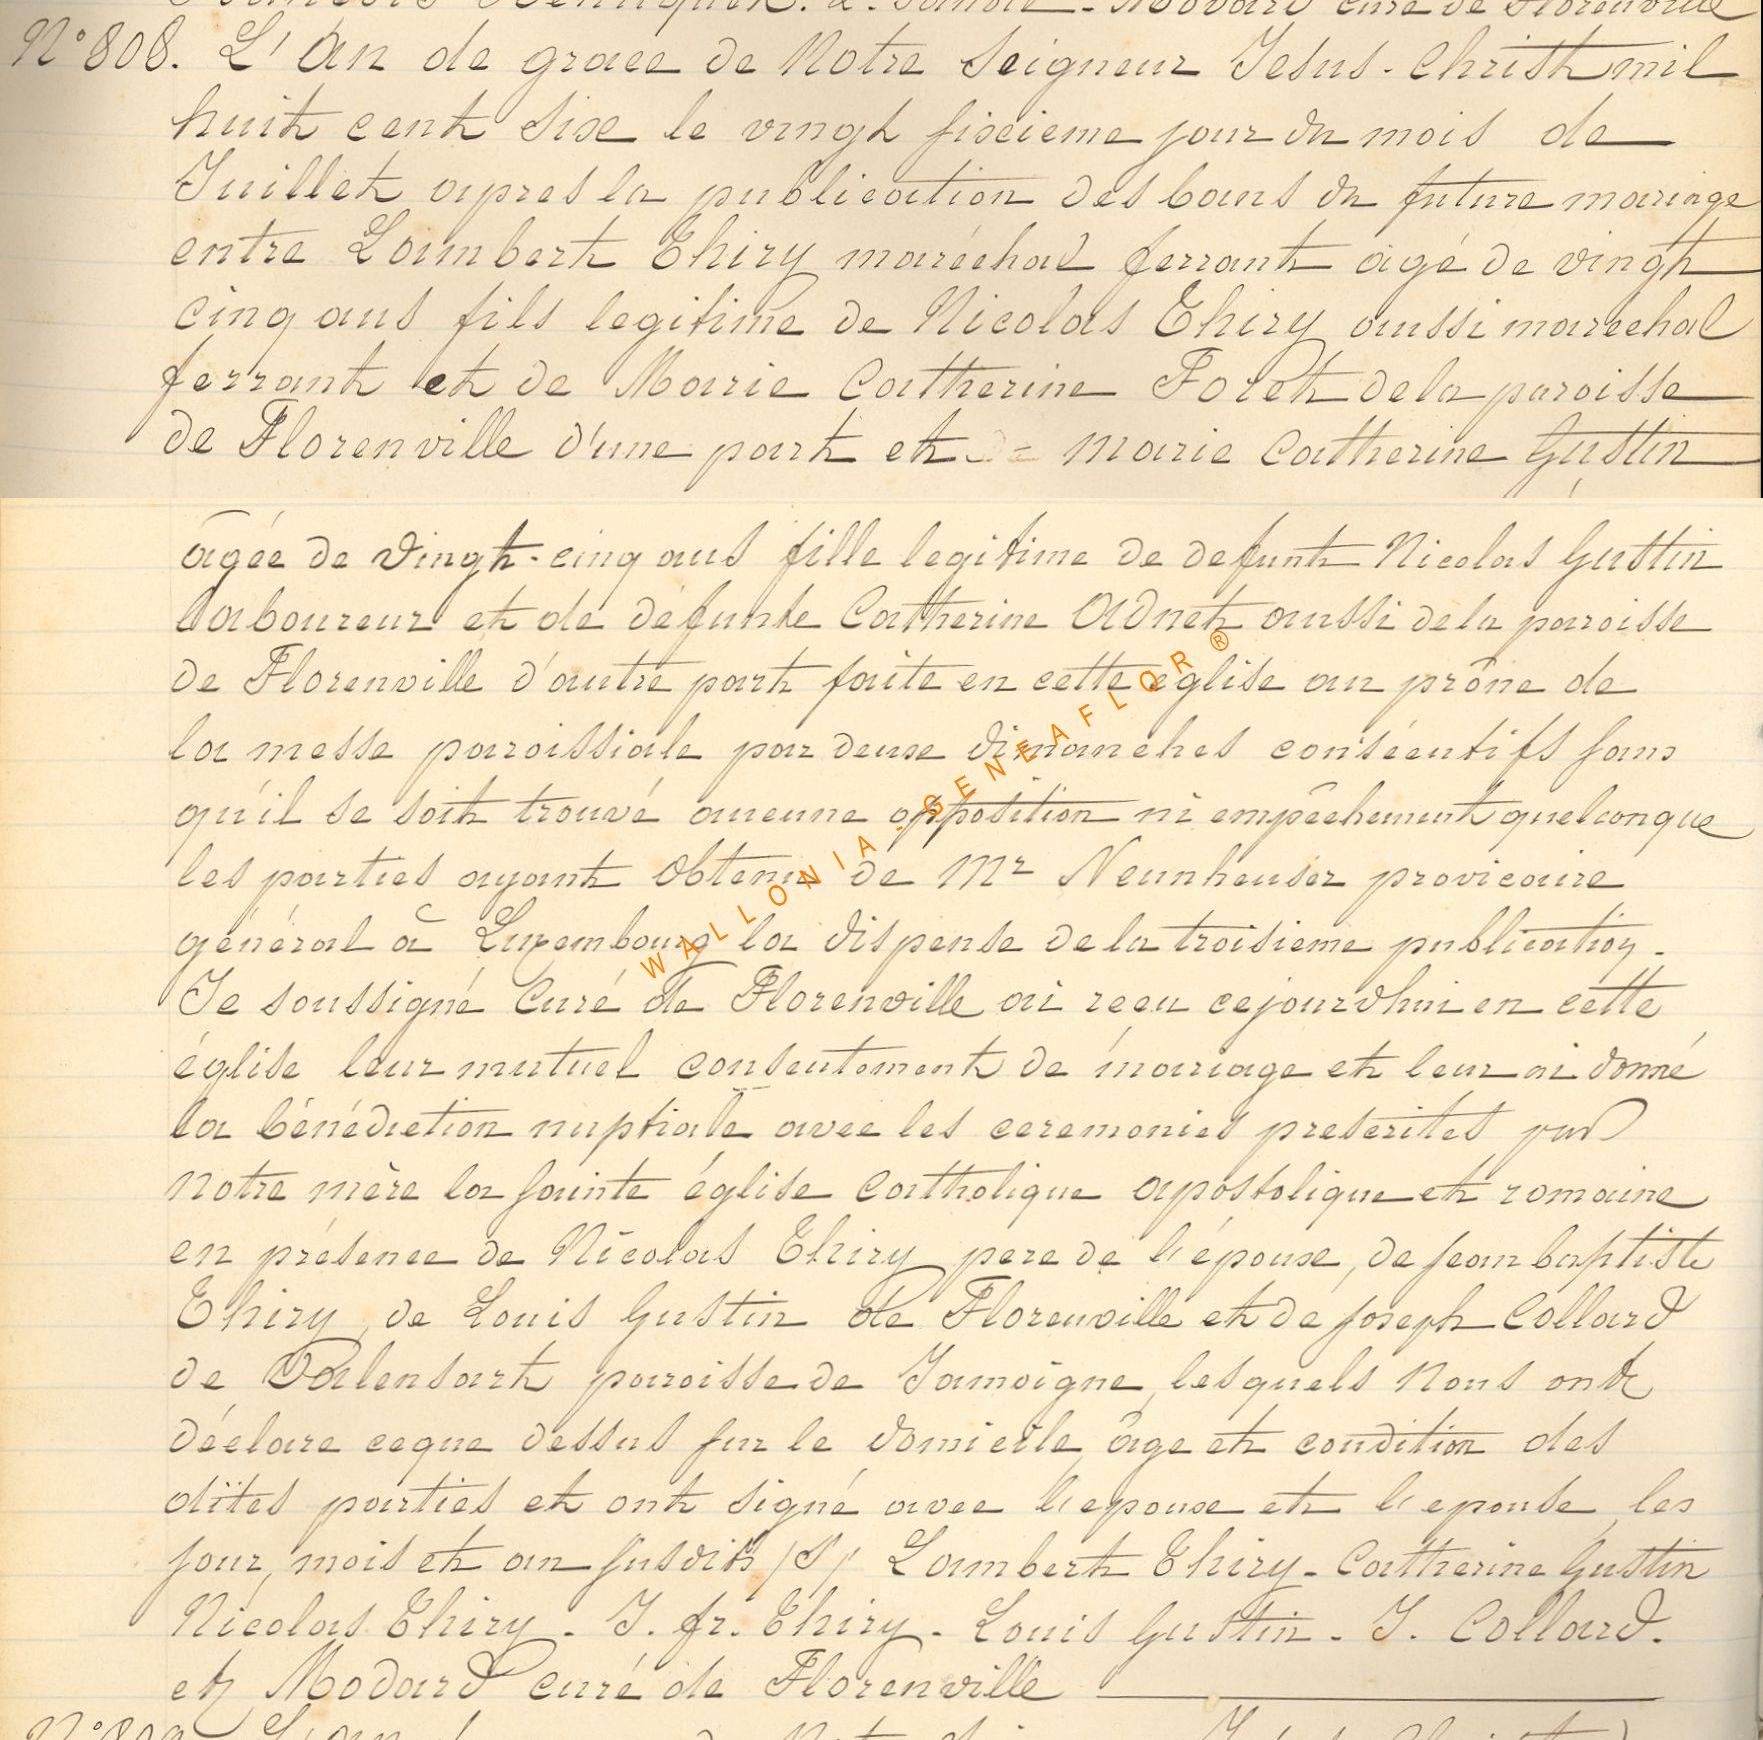 François Henriquet. L. Jandir. Modard curé de Florenville
N° 808. L'An de grace de Notre Seigneur Jesus-Christ mil
huit cent six le vingt sixieme jour du mois de
Juillet apres la publication des bans du future mariage
entre Lambert Thiry maréchal ferrant agé de vingt
cinq ans fils legitime de Nicolas Thiry aussi marechal
ferrant et de Marie Catherine Foret de la paroisse
de Florenville d'une part et de Marie Catherine Gustin
agée de vingt-cinq ans fille legitime de defunt Nicolas Gustin
laboureur et de défunte Catherine Adnet aussi de la paroisse
de Florenville d'autre part faite en cette église au prône de
la messe paroissiale par deux dimanches consécutifs sans
qu'il se soit trouvé aucune opposition ni empêchement quelconque
les parties ayant obtenu de Mr Neunheuser provicaire
général à Luxembourg la dispense de la troisieme publication.
Je soussigné Curé de Florenville ai recu cejourdhui en cette
église leur mutuel consentement de mariage et leur ai donné
la bénédiction nuptiale avec les ceremonies prescrites par
notre mère la sainte église catholique apostolique et romaine
en présence de Nicolas Thiry pere de l'époux, de jean baptiste
Thiry, de Louis Gustin de Florenville et de joseph Collard
de Valensart paroisse de Jamoigne, lesquels nous ont
déclare ceque dessus sur le domicile, âge et condition des
dites parties et ont signé avec l'epoux et l'epouse, les
jour, mois et an susdits /S/ Lambert Thiry - Catherine Gustin
Nicolas Thiry - J. fr. Thiry - Louis Gustin - J. Collard.
et Modard curé de Florenville
N° 809 L'an de
WALLONIA - GENEAFLOR ®